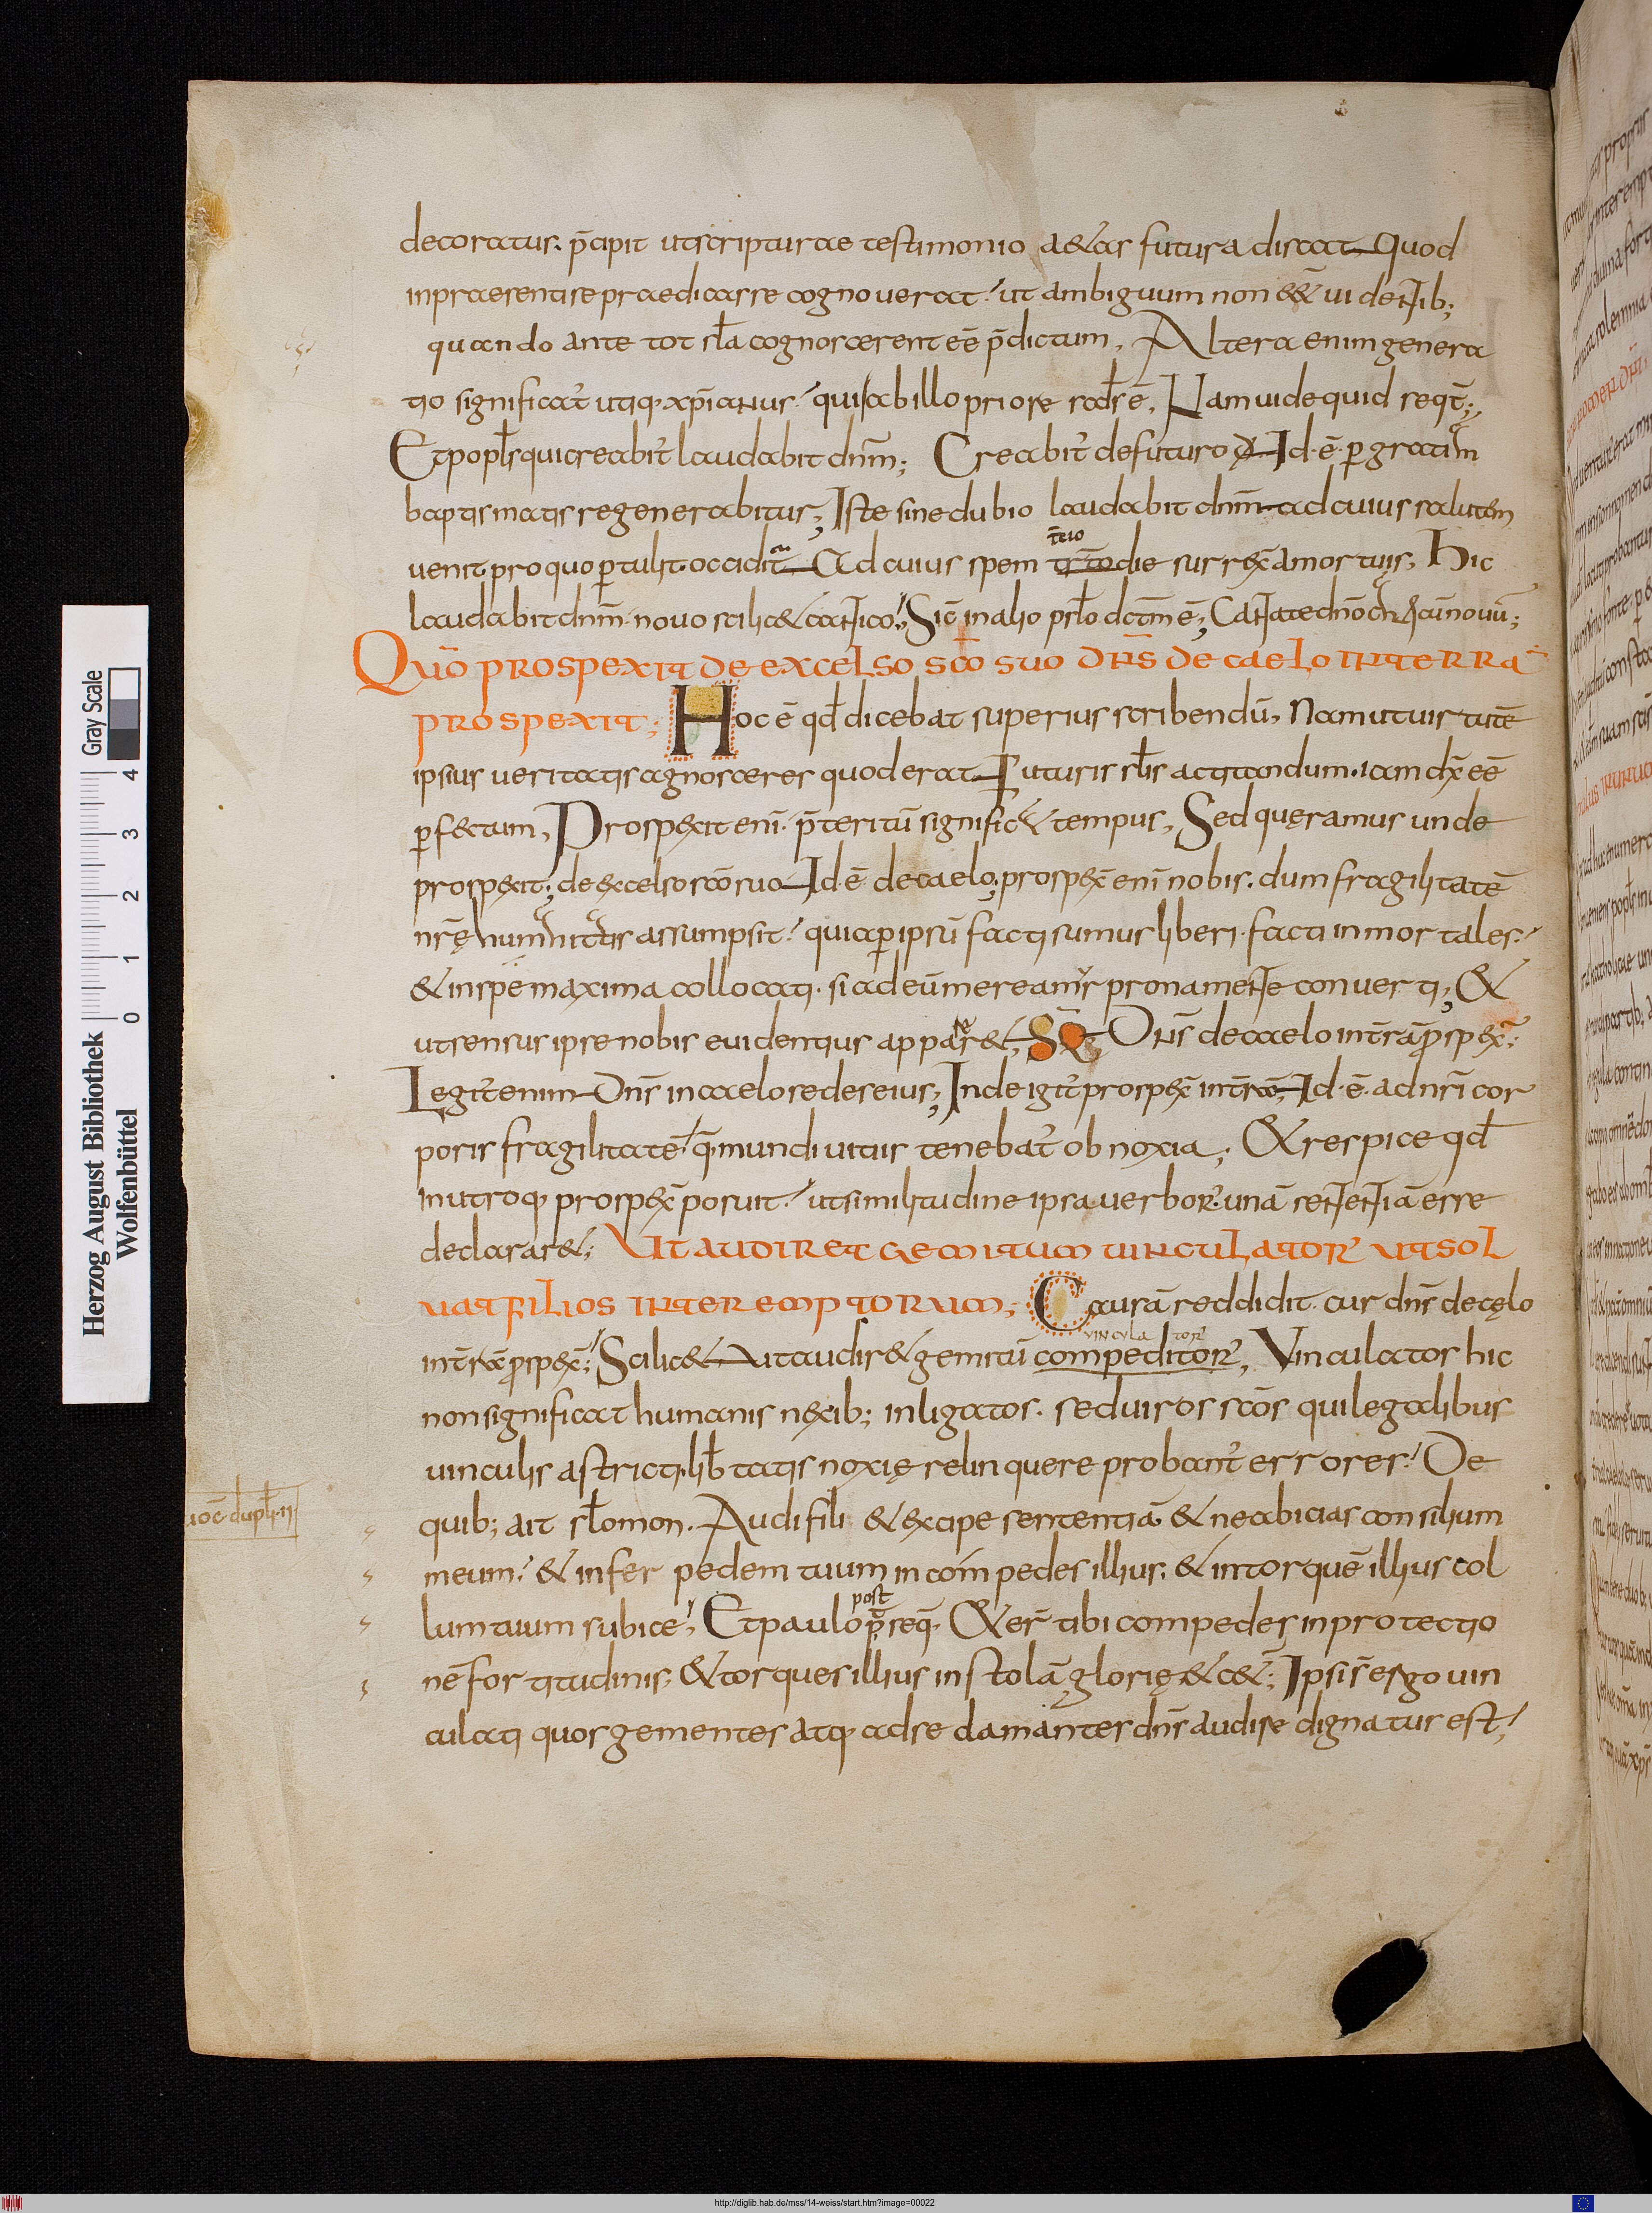 decoratus. p̄cipit utscripturae testimonio a&as futura discat. Quod
inpraesentise praedicasse cognouerat. ut ambiguum non e&̄ uidentib;
quando ante tot sc̄la cognoscerent eē p̄dictum. Altera enim genera
tio significat̄ utiq. xp̄ianus. qui ab illo priore Nam uide quid seqt̄;
Et popl̄s qui creabit̄ laudabit dnm̄; Creabit̄ de futuro Id. ē. p gratiam
baptismatis regenerabitur; Iste sine dubio laudabit dnm̄ ad cuius salutem
uenit pro quo ptulit occidit. Ad cuius spem die surrex̄ a mortuis. Hic
t̄cio
laudabit dnm̄. nouo scilic& cantico; Sic̄ in alio psl̄o dctm̄ ē; Cantate dnō canticū nouū;
Quō prospexit de excelso scō suo dn̄s de caelo in terrā
prospexit; Hoc ē qd̄ dicebat superius scribendū, Nam ut uirtutē
ipsius ueritatis agnosceres quod erat futuris sc̄lis actitandum. iam dx̄ eē
pfectum, Prospexit eni. p̄teritū signific& tempus, Sed queramus unde
prospexit; de excelso scō suo Id. ē de caelo; prospex̄ eni nobis. dum fragilitatē
nrē̜ humanitatis assumpsit. quia p ipsū facti sumus liberi. facti inmortales.
& inspe maxima collocati. si ad eū mereamur prona mente conuerti; &
ut sensus ipse nobis euidentius appar&; SQ Dns de caelo in t̄rā pspex̄;
Legit̄ enim Dn̄s in caelo sedes eius; Inde igit̄ prospex̄ in t̄rā, Id. ē. ad nrī cor
poris fragilitatē. q mundi uitiis tenebat̄ obnoxia; & respice qd̄
in utroq. prospex̄ posuit. ut similitudine ipsa uerbor. unā sententiā esse
declarar&; Ut audiret gemitum uinculator̄ ut sol
uat filios interemptorum; Causā reddidit. cur dn̄s de cęlo
in t̄rā pspex̄; Scilic& ut audir& gemitū compeditor̄, Vinculatos hic
VINCULA tor̄
non significat humanis nexib; inligatos. sed uiros scōs qui legalibus
uinculis astricti. lib̄tatis noxię relinquere probant̄ errores. De
quib; ait sl̄omon. Audi fili & excipe sententiā & ne abicias consilium
meum. & infer pedem tuum in compedes illius. & in torquē illius col
lum tuum subice, Et paulo seq. & er̄ tibi compedes in protectio
post
nē fortitudinis. & torques illius in stolā glorię & c&; Ipsi s̄ ergo uin
culati quos gementes atq. ad se clamantes dn̄s audire dignatus est;
Herzog August Bibliothek
Wolfenbüttel
Gray Scale
0 1 2 3 4
http://diglib.hab.de/mss/14-weiss/start.htm?image=00022